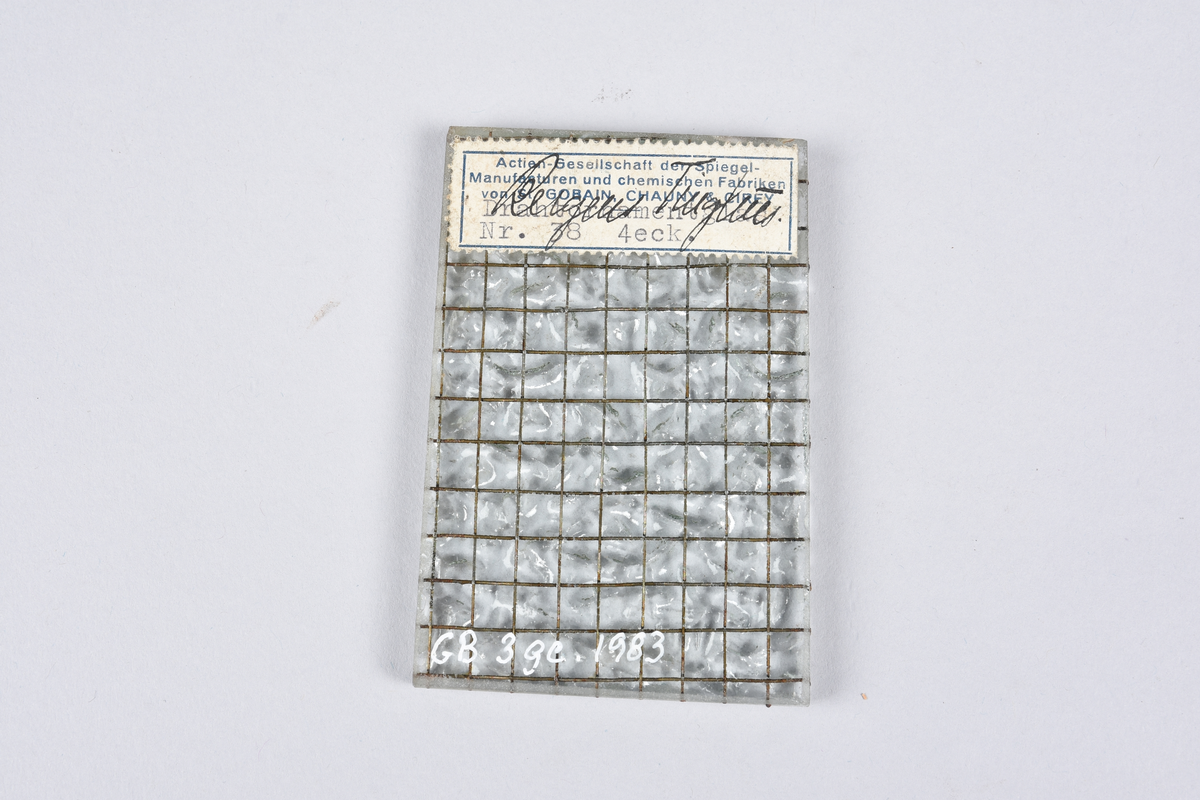 Actien-Gesellschaft der Spiegel-
Manufacturen und chemischen Fabriken
von St. GOBAIN, CHAUNY & CIREY
Nr. 38 4eck.
GB. 3 gc. 1983